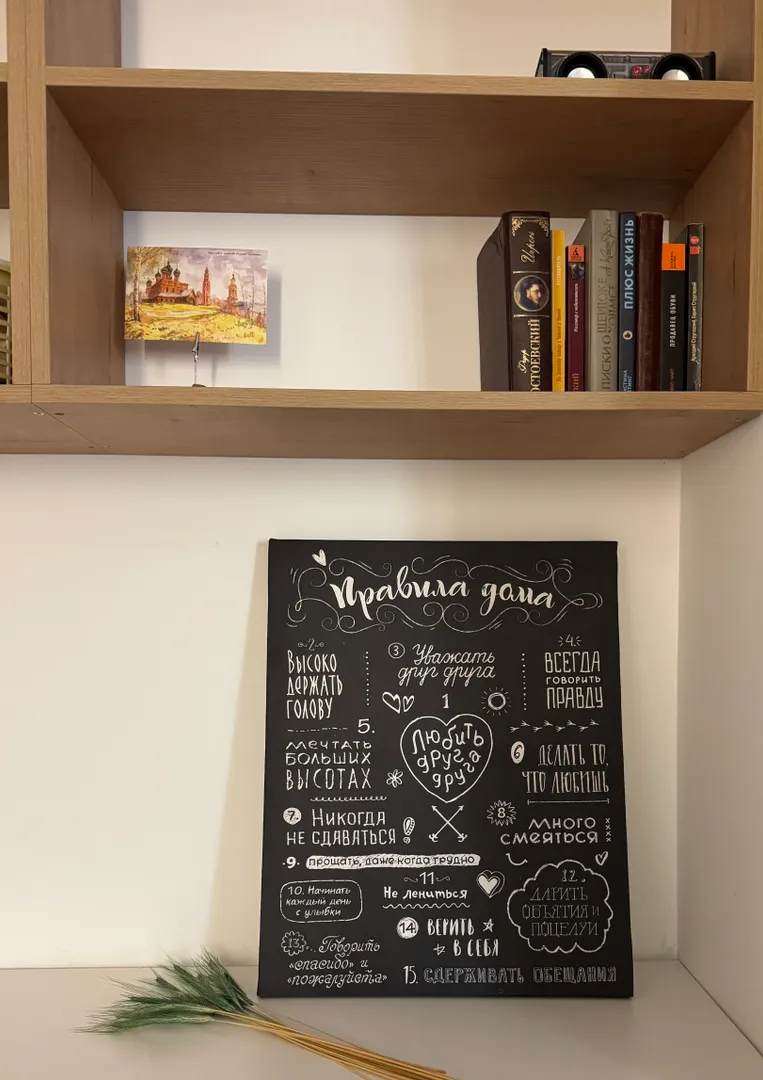 Идиот
Фёдор
ДОСТОЕВСКИЙ
ПЛЮС ЖИЗНЬ
ПРОДАВЕЦ ОБУВИ
Аркадий Стругацкий, Борис Стругацкий
Правила дома
2.
ВЫСОКО
ДЕРЖАТЬ
ГОЛОВУ
3
Уважать
друг друга
4.
ВСЕГДА
ГОВОРИТЬ
ПРАВДУ
1
Любить
друг
друга
5.
мечтать
больших
высотах
6
ДЕЛАТЬ ТО,
ЧТО ЛЮБИШЬ
7.
Никогда
не сдаваться
8.
много
смеяться
.9. прощать, даже когда трудно
10. Начинать
каждый день
с улыбки
11
Не лениться
12.
ДАРИТЬ
ОБЪЯТИЯ И
ПОЦЕЛУИ
13. ...Говорить
«спасибо» и
«пожалуйста»
14. ВЕРИТЬ
В СЕБЯ
15. СДЕРЖИВАТЬ ОБЕЩАНИЯ